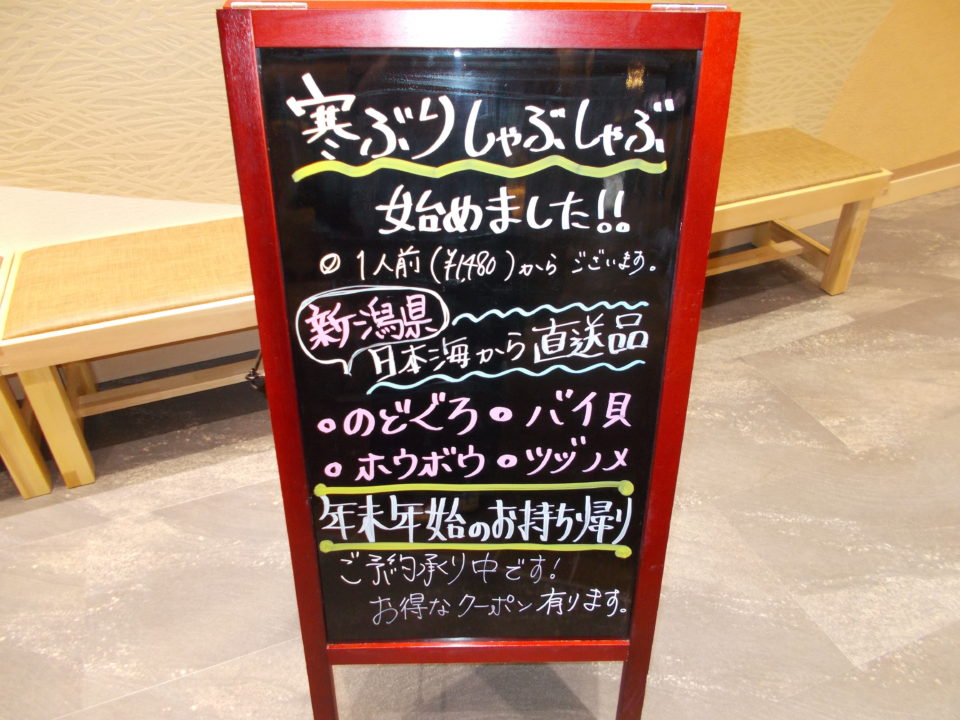 寒ぶりしゃぶしゃぶ
始めました!!
○ 1人前(¥1,480)から ございます。
新潟県
日本海から直送品
○のどぐろ ○バイ貝
○ホウボウ ○ツヅノメ
年末年始のお持ち帰り
ご予約承り中です!
お得なクーポン有ります。